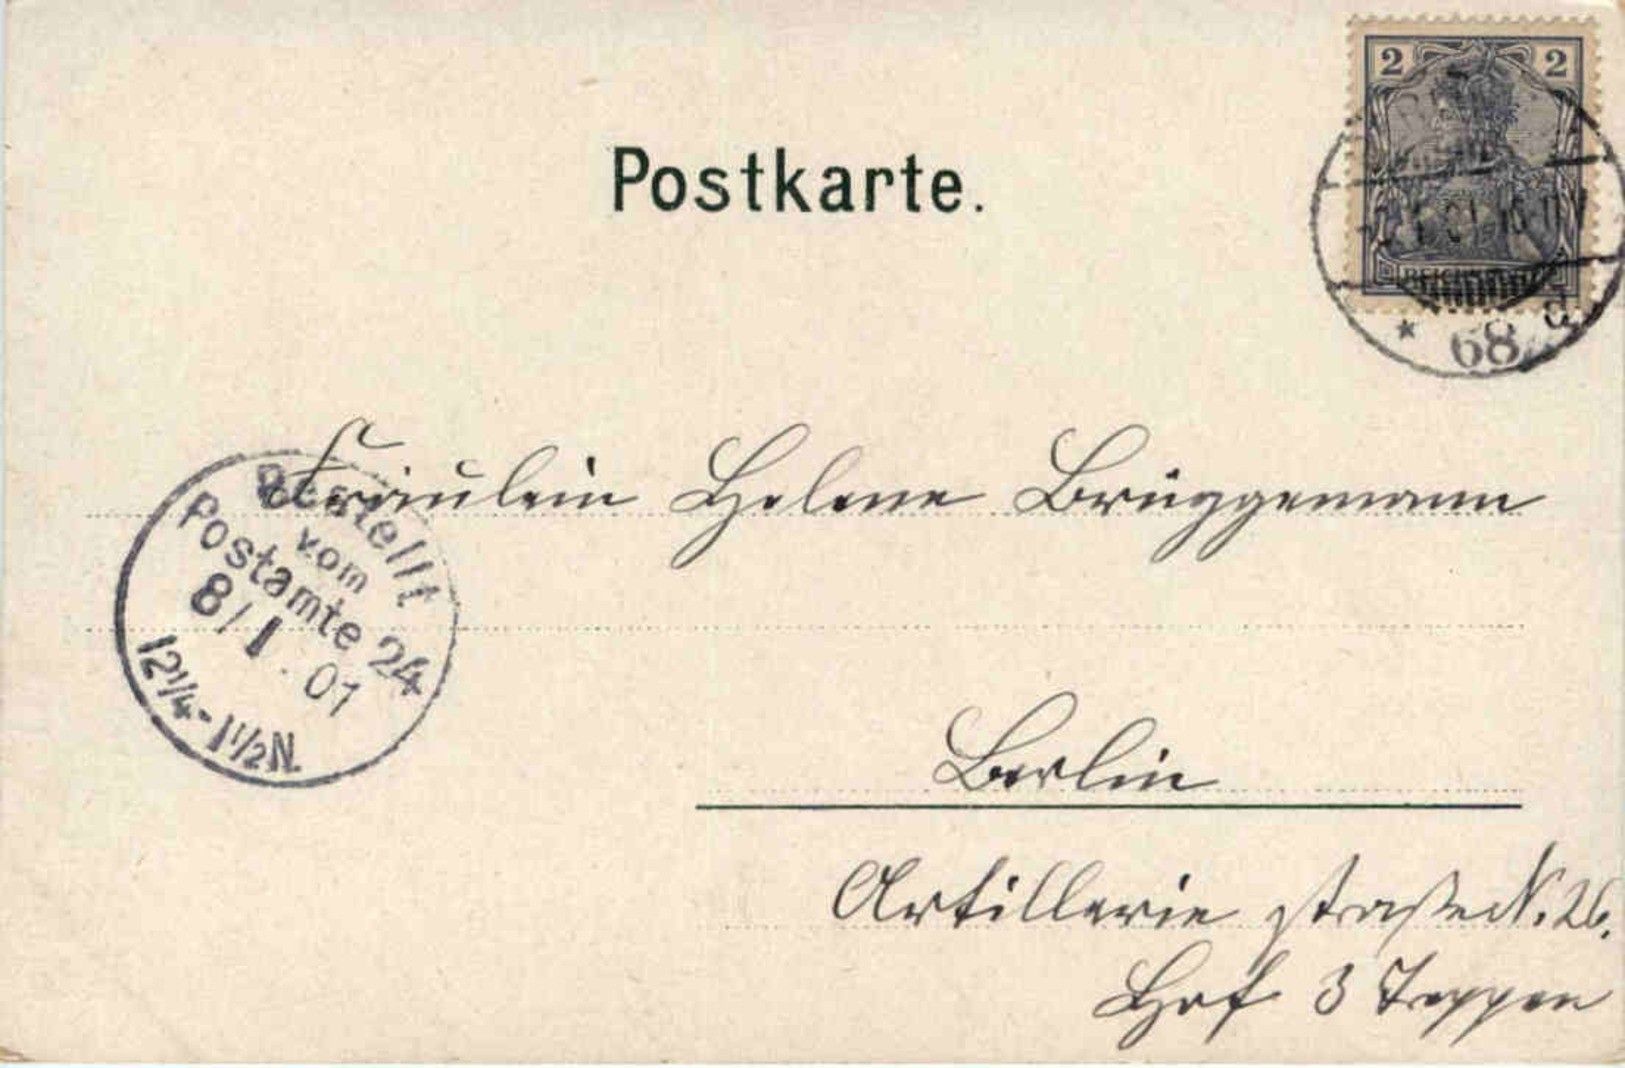 2 2
Postkarte.
REICHSPOST
* 68 a
Fräulein Helene Brüggemann
Bestellt
vom
Postamte 24
8/1.01
12¼-1½N.
Berlin
Artilleriestraße N. 26.
Hof 3 Treppen